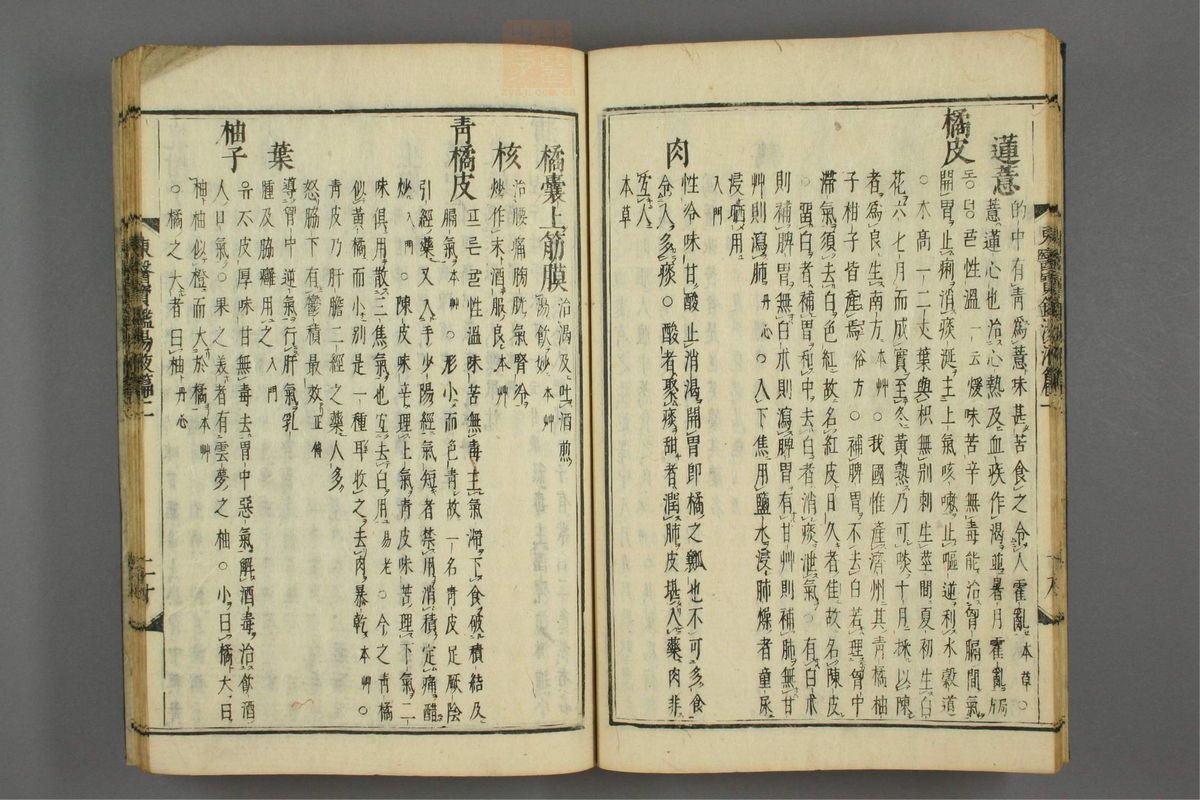 蓮薏
的中有靑爲薏味甚苦食之令人霍亂本草○
薏蓮心也治心熱及血疾作渴並暑月霍亂局
橘皮
동뎡귤性溫一云煖味苦辛無毒能治胷膈間氣
開胃止痢消痰涎主上氣咳嗽止嘔逆利水穀道
○木高一二丈葉與枳無別刺生莖間夏初生白
花六七月而成實至冬黃熟乃可啖十月採以陳
者爲良生南方本艸○我國惟產濟州其靑橘柚
子柑子皆產焉俗方○補脾胃不去白若理胷中
滯氣須去白色紅故名紅皮日久者佳故名陳皮
○留白者補胃和中去白者消痰泄氣○有白朮
則補脾胃無白朮則瀉脾胃有甘艸則補肺無甘
艸則瀉肺丹心○入下焦用鹽水浸肺燥者童尿
浸晒用
入門
肉
性冷味甘酸止消渴開胃卽橘之瓤也不可多食
令人多痰○酸者聚痰甜者潤肺皮堪入藥肉非
宜人
本草
橘囊上筋膜
治渴及吐酒煎
湯飮妙本艸
核
治腰痛膀胱氣腎冷
炒作末酒服良本艸
靑橘皮
프른귤性溫味苦無毒主氣滯下食破積結及
膈氣本艸○形小而色靑故一名靑皮足厥陰
引經藥又入手少陽經氣短者禁用消積定痛醋
炒入門○陳皮味辛理上氣靑皮味苦理下氣二
味俱用散三焦氣也宜去白用易老○今之靑橘
似黃橘而小別是一種耳收之去肉暴乾本艸○
靑皮乃肝膽二經之藥人多
怒脇下有鬱積最效正傳
葉
導胷中逆氣行肝氣乳
腫及脇癰用之入門
柚子
유ᄌᆞ皮厚味甘無毒去胃中惡氣解酒毒治飮酒
人口氣○果之美者有雲夢之柚○小曰橘大曰
柚柚似橙而大於橘本艸
○橘之大者曰柚丹心
東醫寶鑑湯液篇二